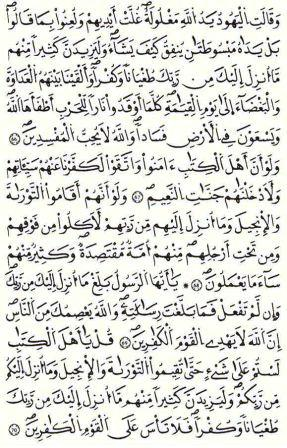 وَقَالَتِ ٱلْيَهُودُ يَدُ ٱللَّهِ مَغْلُولَةٌ غُلَّتْ أَيْدِيهِمْ وَلُعِنُوا۟ بِمَا قَالُوا۟
بَلْ يَدَاهُ مَبْسُوطَتَانِ يُنفِقُ كَيْفَ يَشَآءُ وَلَيَزِيدَنَّ كَثِيرًا مِّنْهُم
مَّآ أُنزِلَ إِلَيْكَ مِن رَّبِّكَ طُغْيَٰنًا وَكُفْرًا وَأَلْقَيْنَا بَيْنَهُمُ ٱلْعَدَٰوَةَ
وَٱلْبَغْضَآءَ إِلَىٰ يَوْمِ ٱلْقِيَٰمَةِ كُلَّمَآ أَوْقَدُوا۟ نَارًا لِّلْحَرْبِ أَطْفَأَهَا ٱللَّهُ
وَيَسْعَوْنَ فِى ٱلْأَرْضِ فَسَادًا وَٱللَّهُ لَا يُحِبُّ ٱلْمُفْسِدِينَ ٦٤
وَلَوْ أَنَّ أَهْلَ ٱلْكِتَٰبِ ءَامَنُوا۟ وَٱتَّقَوْا۟ لَكَفَّرْنَا عَنْهُمْ سَيِّـَٔاتِهِمْ
وَلَأَدْخَلْنَٰهُمْ جَنَّٰتِ ٱلنَّعِيمِ ٦٥ وَلَوْ أَنَّهُمْ أَقَامُوا۟ ٱلتَّوْرَىٰةَ
وَٱلْإِنجِيلَ وَمَآ أُنزِلَ إِلَيْهِم مِّن رَّبِّهِمْ لَأَكَلُوا۟ مِن فَوْقِهِمْ
وَمِن تَحْتِ أَرْجُلِهِم مِّنْهُمْ أُمَّةٌ مُّقْتَصِدَةٌ وَكَثِيرٌ مِّنْهُمْ
سَآءَ مَا يَعْمَلُونَ ٦٦ ۞ يَٰٓأَيُّهَا ٱلرَّسُولُ بَلِّغْ مَآ أُنزِلَ إِلَيْكَ مِن رَّبِّكَ
وَإِن لَّمْ تَفْعَلْ فَمَا بَلَّغْتَ رِسَالَتَهُۥ وَٱللَّهُ يَعْصِمُكَ مِنَ ٱلنَّاسِ
إِنَّ ٱللَّهَ لَا يَهْدِى ٱلْقَوْمَ ٱلْكَٰفِرِينَ ٦٧ قُلْ يَٰٓأَهْلَ ٱلْكِتَٰبِ
لَسْتُمْ عَلَىٰ شَىْءٍ حَتَّىٰ تُقِيمُوا۟ ٱلتَّوْرَىٰةَ وَٱلْإِنجِيلَ وَمَآ أُنزِلَ إِلَيْكُم
مِّن رَّبِّكُمْ وَلَيَزِيدَنَّ كَثِيرًا مِّنْهُم مَّآ أُنزِلَ إِلَيْكَ مِن رَّبِّكَ
طُغْيَٰنًا وَكُفْرًا فَلَا تَأْسَ عَلَى ٱلْقَوْمِ ٱلْكَٰفِرِينَ ٦٨